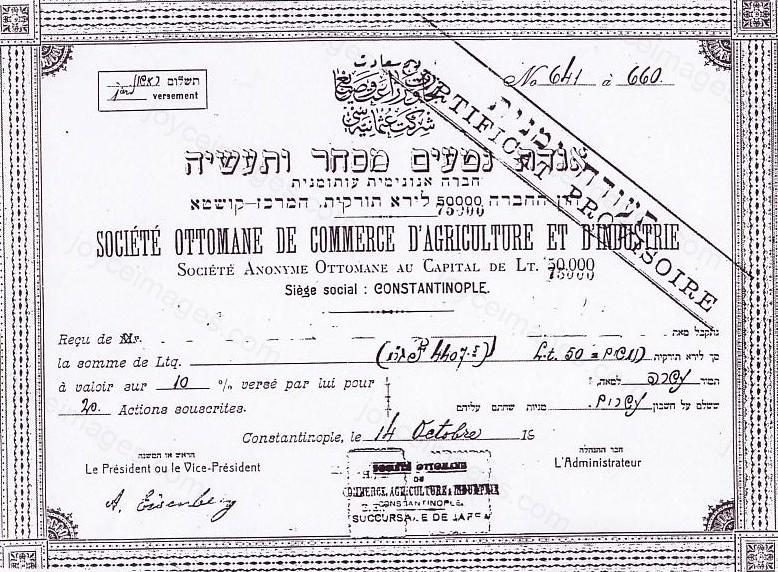 תשלום ראשון
versement
No 641 à 660
שركت عثمانیه سی
תעודה זמנית
CERTIFICAT PROVISOIRE
אגודת נטעים מסחר ותעשיה
חברה אנונימית עותומנית
הון החברה 50000 לירא תורקית. המרכז—קושטא
75000
SOCIÉTÉ OTTOMANE DE COMMERCE D'AGRICULTURE ET D'INDUSTRIE
SOCIÉTÉ ANONYME OTTOMANE AU CAPITAL DE LT. 50.000
75000
Siège social : CONSTANTINOPLE.
Reçu de Mr.
נתקבל מאת
la somme de Ltq.
Lt. 50 = חמשים
סך לירא תורקית
à valoir sur 10 % versé par lui pour
תמיר עשרה למאה,
20 Actions souscrites.
ששלם על חשבון עשרים מניות שחתם עליהם
Constantinople, le 14 Octobre 19
הראש או המשנה
Le Président ou le Vice-Président
חבר ההנהלה
L'Administrateur
A. Eisenberg
SOCIÉTÉ OTTOMANE
DE
COMMERCE, AGRICULTURE & INDUSTRIE
CONSTANTINOPLE.
SUCCURSALE DE JAFFA
joyceimages.com